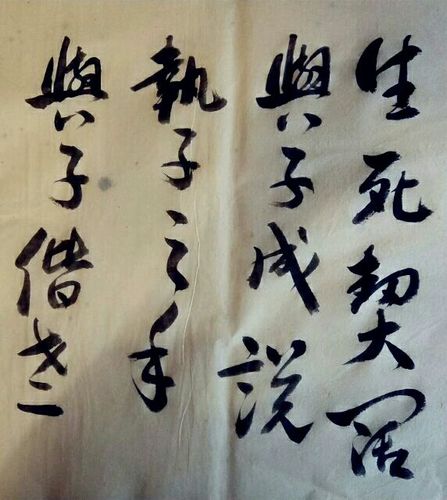 生死契闊
與子成説
執子之手
與子偕老